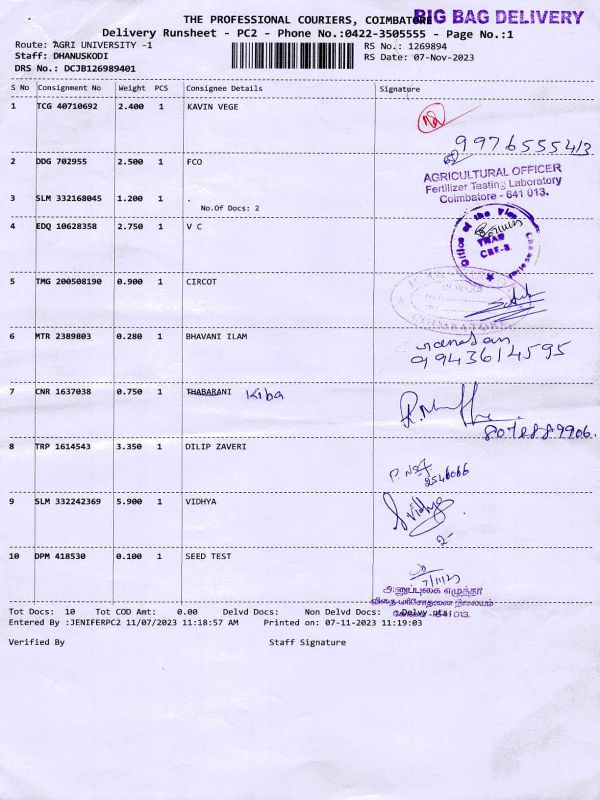 THE PROFESSIONAL COURIERS, COIMBATORE
BIG BAG DELIVERY
Delivery Runsheet - PC2 - Phone No.:0422-3505555 - Page No.:1
Route: AGRI UNIVERSITY -1
RS No.: 1269894
Staff: DHANUSKODI
RS Date: 07-Nov-2023
DRS No.: DCJB126989401
S No Consignment No Weight PCS Consignee Details Signature
1 TCG 40710692 2.400 1 KAVIN VEGE
9976555413
2 DDG 702955 2.500 1 FCO
AGRICULTURAL OFFICER
Fertilizer Testing Laboratory
Coimbatore - 641 013.
3 SLM 332168045 1.200 1 .
No.Of Docs: 2
4 EDQ 10628358 2.750 1 V C
Office of the Vice Chancellor
TNAU
CBE-3.
5 TMG 200508190 0.900 1 CIRCOT
COIMBATORE
6 MTR 2389803 0.280 1 BHAVANI ILAM
9943614595
7 CNR 1637038 0.750 1 THABARANI Kiba
8 TRP 1614543 3.350 1 DILIP ZAVERI
2546066
9 SLM 332242369 5.900 1 VIDHYA
Svidhya
10 DPM 418530 0.100 1 SEED TEST
7/11/23
விதை பரிசோதனை நிலையம்
கோவை - 641 013.
Tot Docs: 10 Tot COD Amt: 0.00 Delvd Docs: Non Delvd Docs: Delvy pts:
Entered By :JENIFERPC2 11/07/2023 11:18:57 AM Printed on: 07-11-2023 11:19:03
Verified By Staff Signature